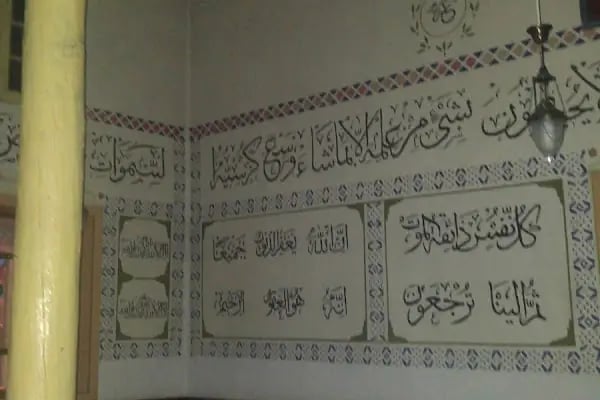 يحيطون بشئ من علمه الا بما شاء وسع كرسيه السموات
كل نفس ذائقة الموت
ثم الينا ترجعون
ان الله يغفر الذنوب جميعا
انه هو الغفور الرحيم